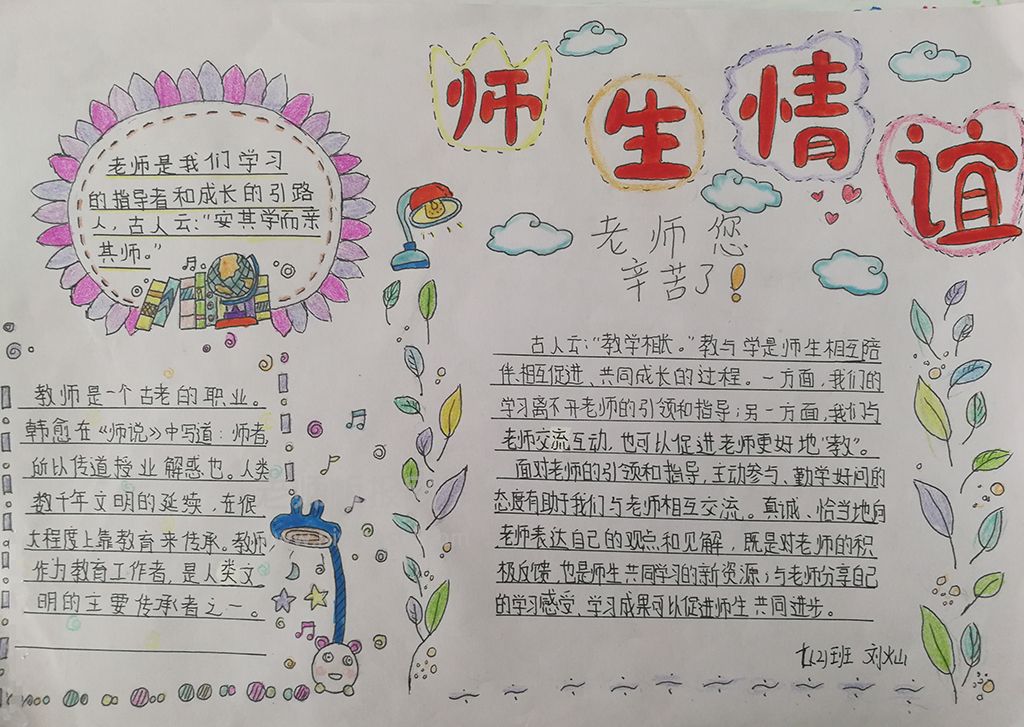 师生情谊
老师您
辛苦了!
老师是我们学习
的指导者和成长的引路
人,古人云:“安其学而亲
其师。”
教师是一个古老的职业。
韩愈在《师说》中写道:师者,
所以传道授业解惑也。人类
数千年文明的延续,在很
大程度上靠教育来传承。教师
作为教育工作者,是人类文
明的主要传承者之一。
古人云:“教学相长。”教与学是师生相互陪
伴、相互促进、共同成长的过程。一方面,我们的
学习离不开老师的引领和指导;另一方面,我们与
老师交流互动,也可以促进老师更好地“教”。
面对老师的引领和指导,主动参与、勤学好问的
态度有助于我们与老师相互交流。真诚、恰当地向
老师表达自己的观点和见解,既是对老师的积
极反馈,也是师生共同学习的新资源;与老师分享自己
的学习感受、学习成果可以促进师生共同进步。
七(2)班 刘火山